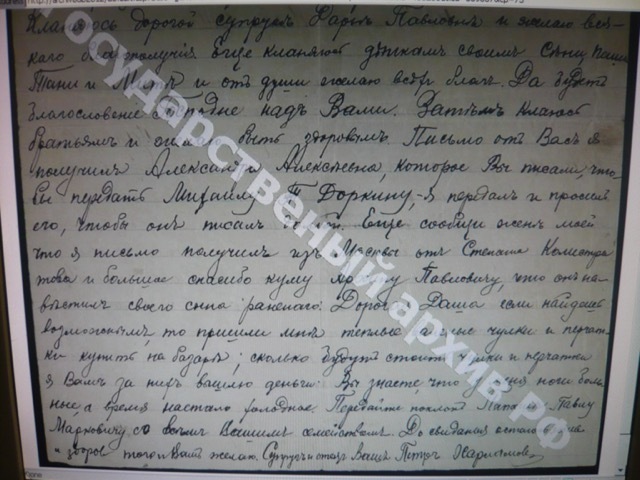 Кланяюсь дорогой супруге Дарьѣ Павловнѣ и желаю вся-
каго благополучія Еще кланяюсь дѣткамъ своимъ Сѣнѣ, Паши
Тани и Митѣ и отъ души желаю всѣхъ благъ. Да будетъ
благословеніе надъ Вами. Затѣмъ кланяюсь
братьямъ и быть здоровымъ. Письмо отъ Васъ я
получилъ Александра Алексѣевна, которое Вы писали, что-
бы передать Михаилу Т Доркину, я передалъ и просилъ
его, чтобы онъ писалъ Еще сообщи женѣ моей
что я письмо получилъ изъ Москвы отъ Степана
и большое спасибо куму Павловичу, что онъ на-
вѣстилъ своего сына раненаго. Дорогая Даша если найдешь
возможнымъ, то пришли мнѣ теплые чулки и перчат-
ки купить на базарѣ; сколько будутъ стоить чулки и перчатки
я Вамъ за нихъ вышлю деньги. Вы знаете, что у меня ноги боль-
ные, а время настало холодное. Передайте поклонъ Павлу
Марковичу со всѣмъ Вашимъ семействомъ. До свиданія остаюсь
здоровъ того и Вамъ желаю. Супругъ и отецъ Вашъ Петръ
Государственный архив РФ